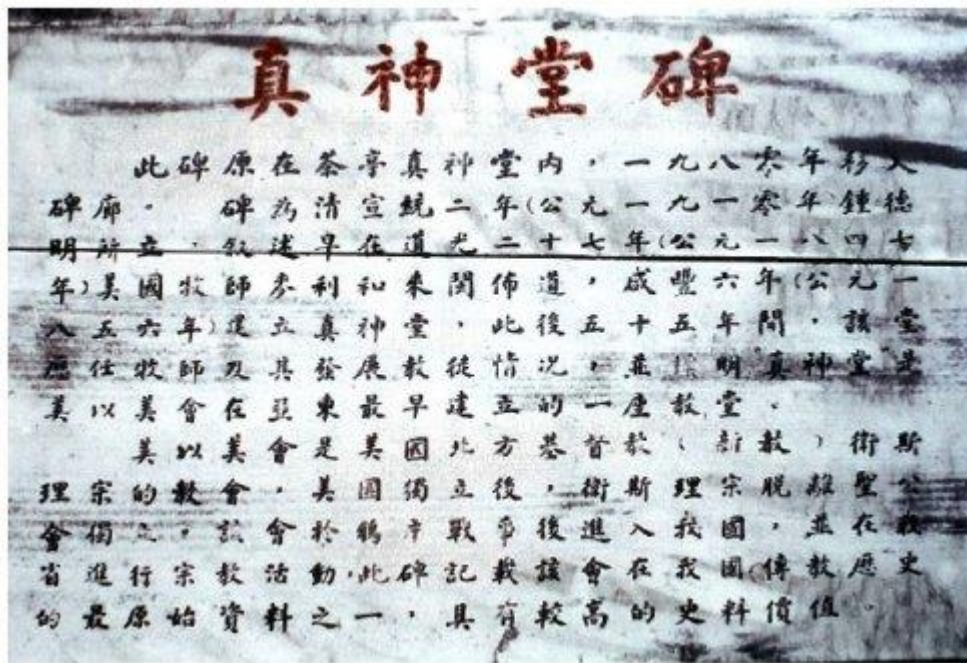 真神堂碑
此碑原在茶亭真神堂内，一九八零年移入
碑廊。碑為清宣統二年(公元一九一零年)鍾德
明所立．叙述早在道光二十七年(公元一八四七
年)美國牧師麥利和來閩佈道，咸豐六年(公元一
八五六年)建立真神堂，此後五十五年間，該堂
歷任牧師及其發展教徒情况，並明"真神堂"是
美以美會在亞東最早建立的一座教堂．
美以美會是美國北方基督教(新教)衛斯
理宗的教會，美國獨立後，衛斯理宗脫離聖公
會獨立，該會於鴉片戰爭後進入我國，並在我
省進行宗教活動，此碑記載該會在我國傳教歷史
的最原始資料之一，具有較高的史料價值。